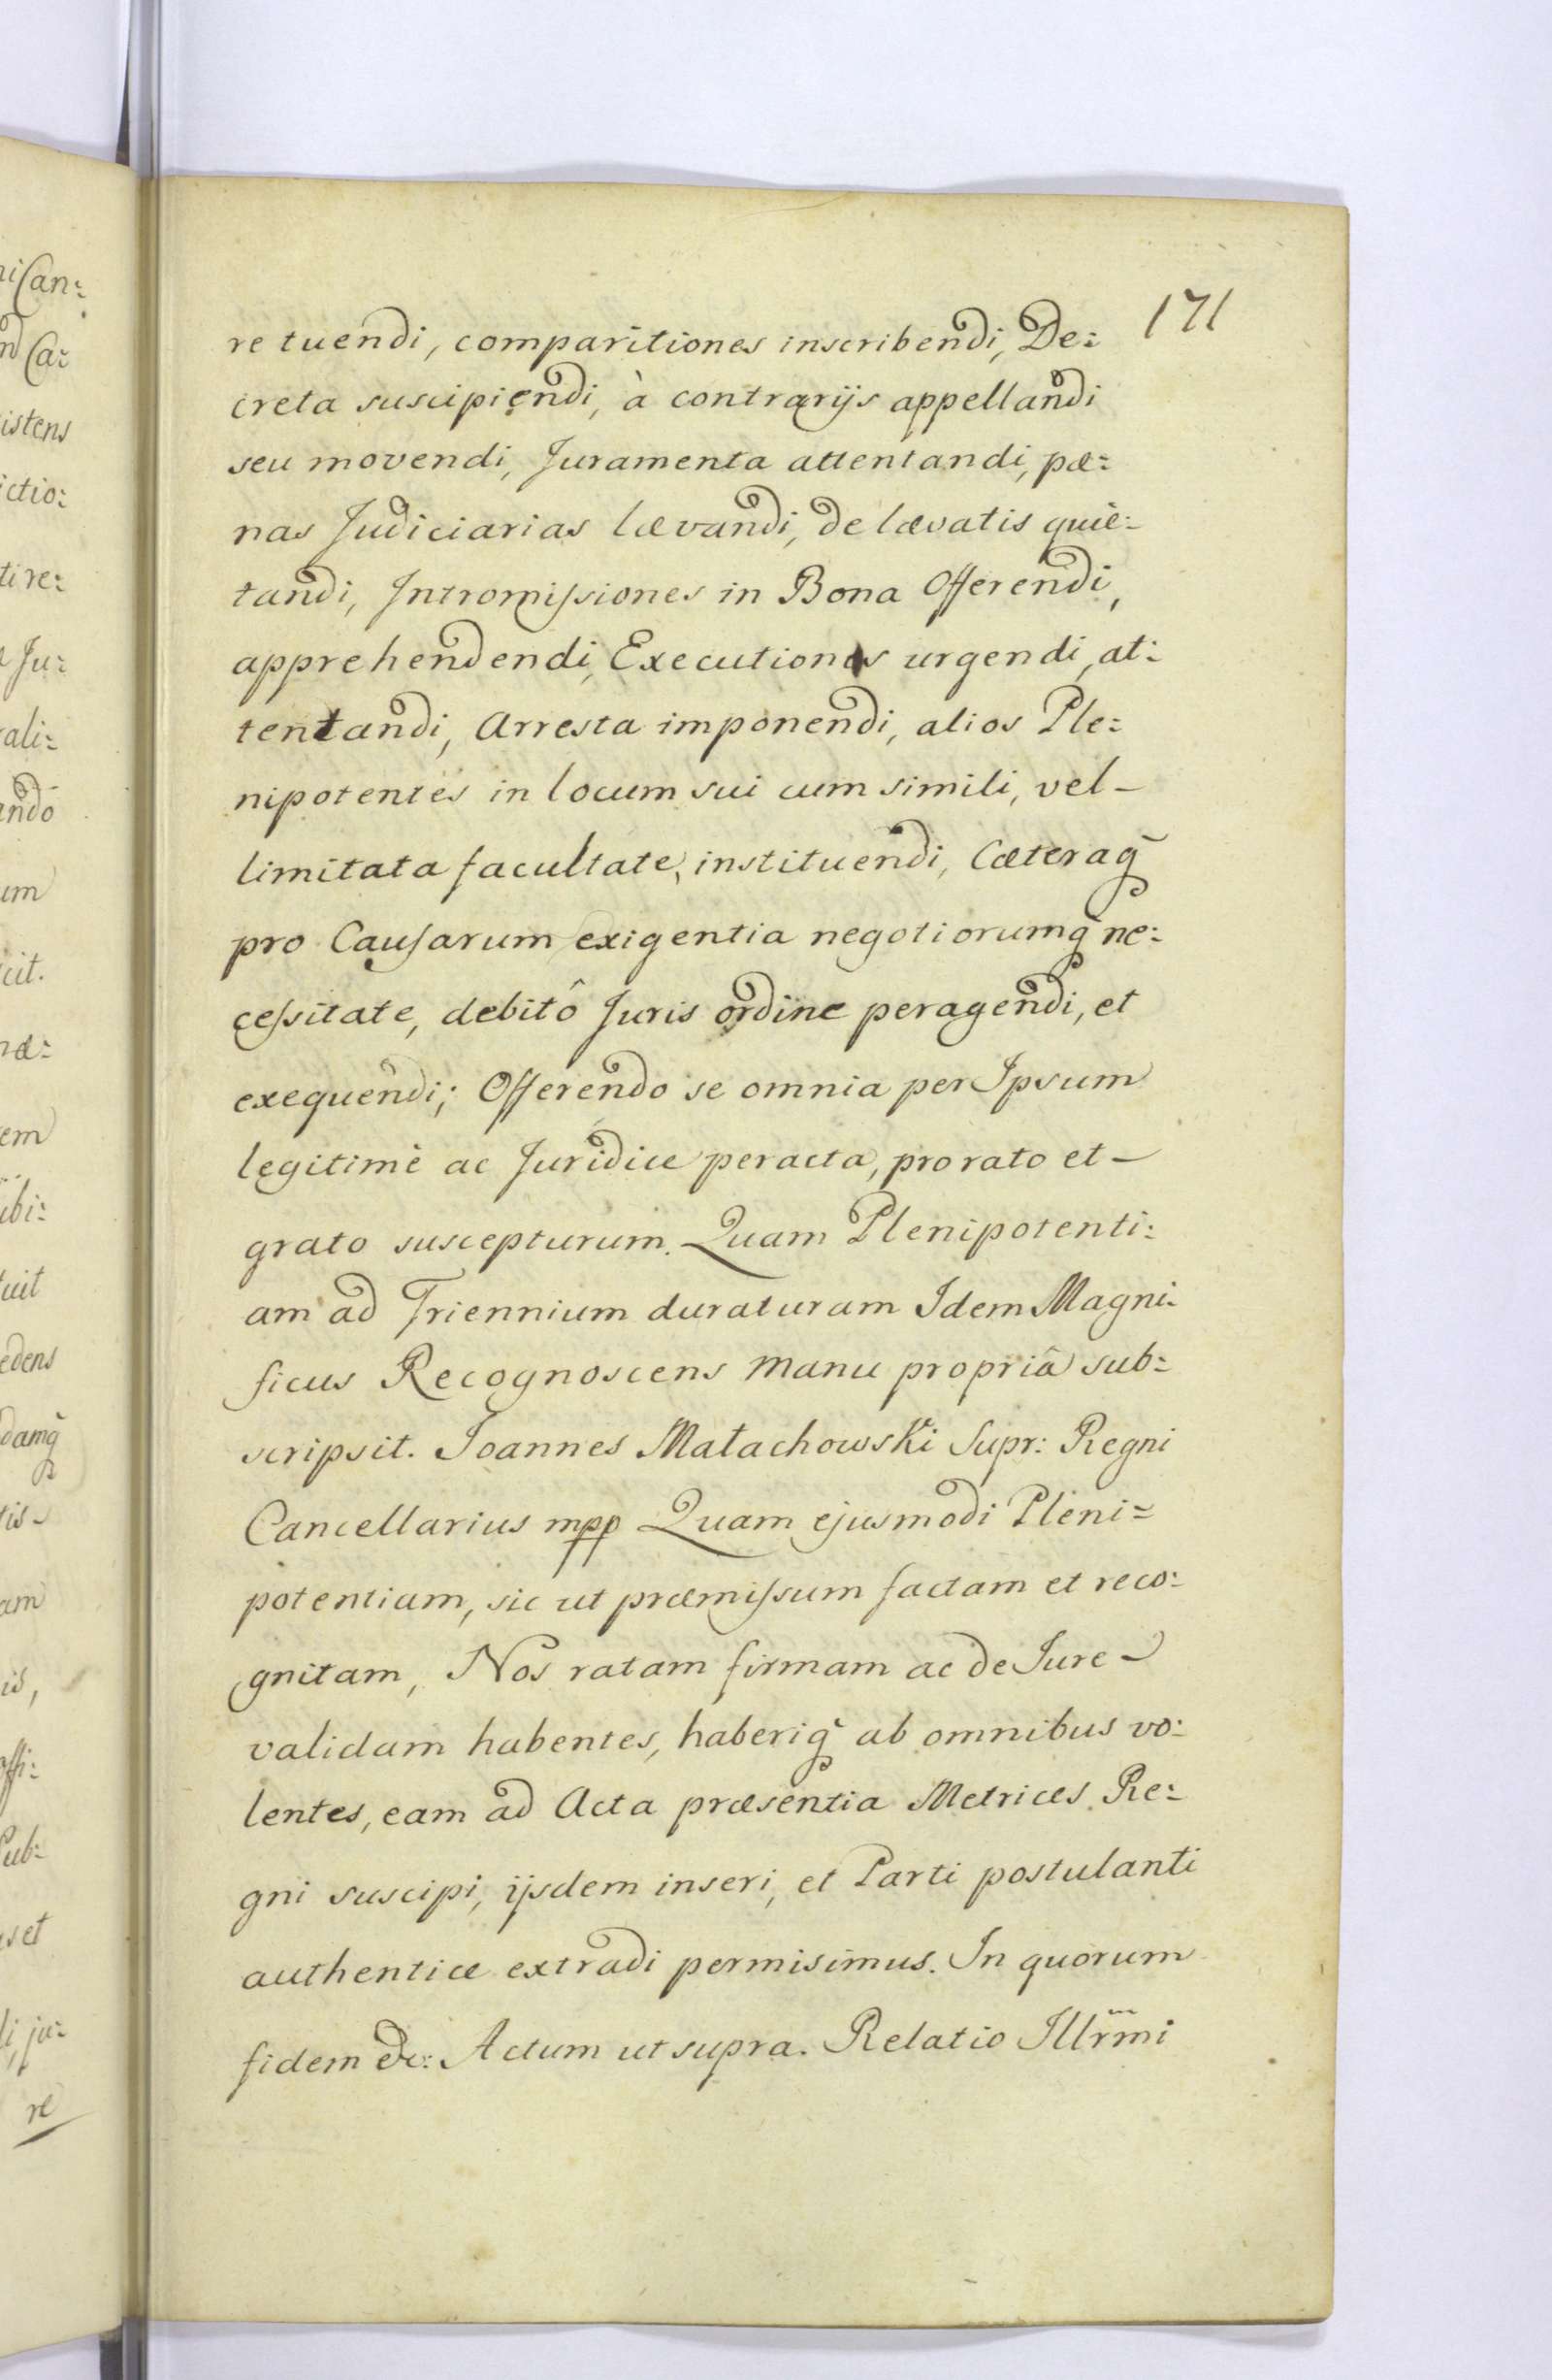 171
re tuendi, comparitiones inscribendi, De:
creta suscipiendi, à contrarijs appellandi
seu movendi, Juramenta attentandi, pæ:
nas Judiciarias lævandi, de lævatis quie:
tandi, Intromissiones in Bona Offerendi,
apprehendendi, Executiones urgendi, at:
tentandi, Arresta imponendi, alios Ple:
nipotentes in locum sui cum simili, vel -
limitata facultate, instituendi, Cæteraq̃
pro Causarum exigentia negotiorumq̃ ne:
cessitate, debitô Juris ordine peragendi, et
exequendi; Offerendo se omnia per Ipsum
legitimè ac Juridice peracta, pro rato et -
grato suscepturum. Quam Plenipotenti:
am ad Triennium duraturam Idem Magni:
ficus Recognoscens manu propriâ sub:
scripsit. Joannes Małachowski Supr: Regni
Cancellarius mpp Quam ejusmodi Pleni:
potentiam, sic ut præmissum factam et reco:
gnitam, Nos ratam firmam ac de Jure -
validam habentes, haberiq̃ ab omnibus vo:
lentes, eam ad Acta præsentia Metrices Re:
gni suscipi, ijsdem inseri, et Parti postulanti
authentice extradi permisimus. In quorum
fidem &c: Actum ut supra. Relatio Illrmi
ni Can:
Ca:
istens
ictio:
ti re:
Ju:
rali:
ando
um
cit.
næ:
em
ibi:
tuit
edens
damq̃
tis -
am
is,
offi:
Pub:
et
ju:
re